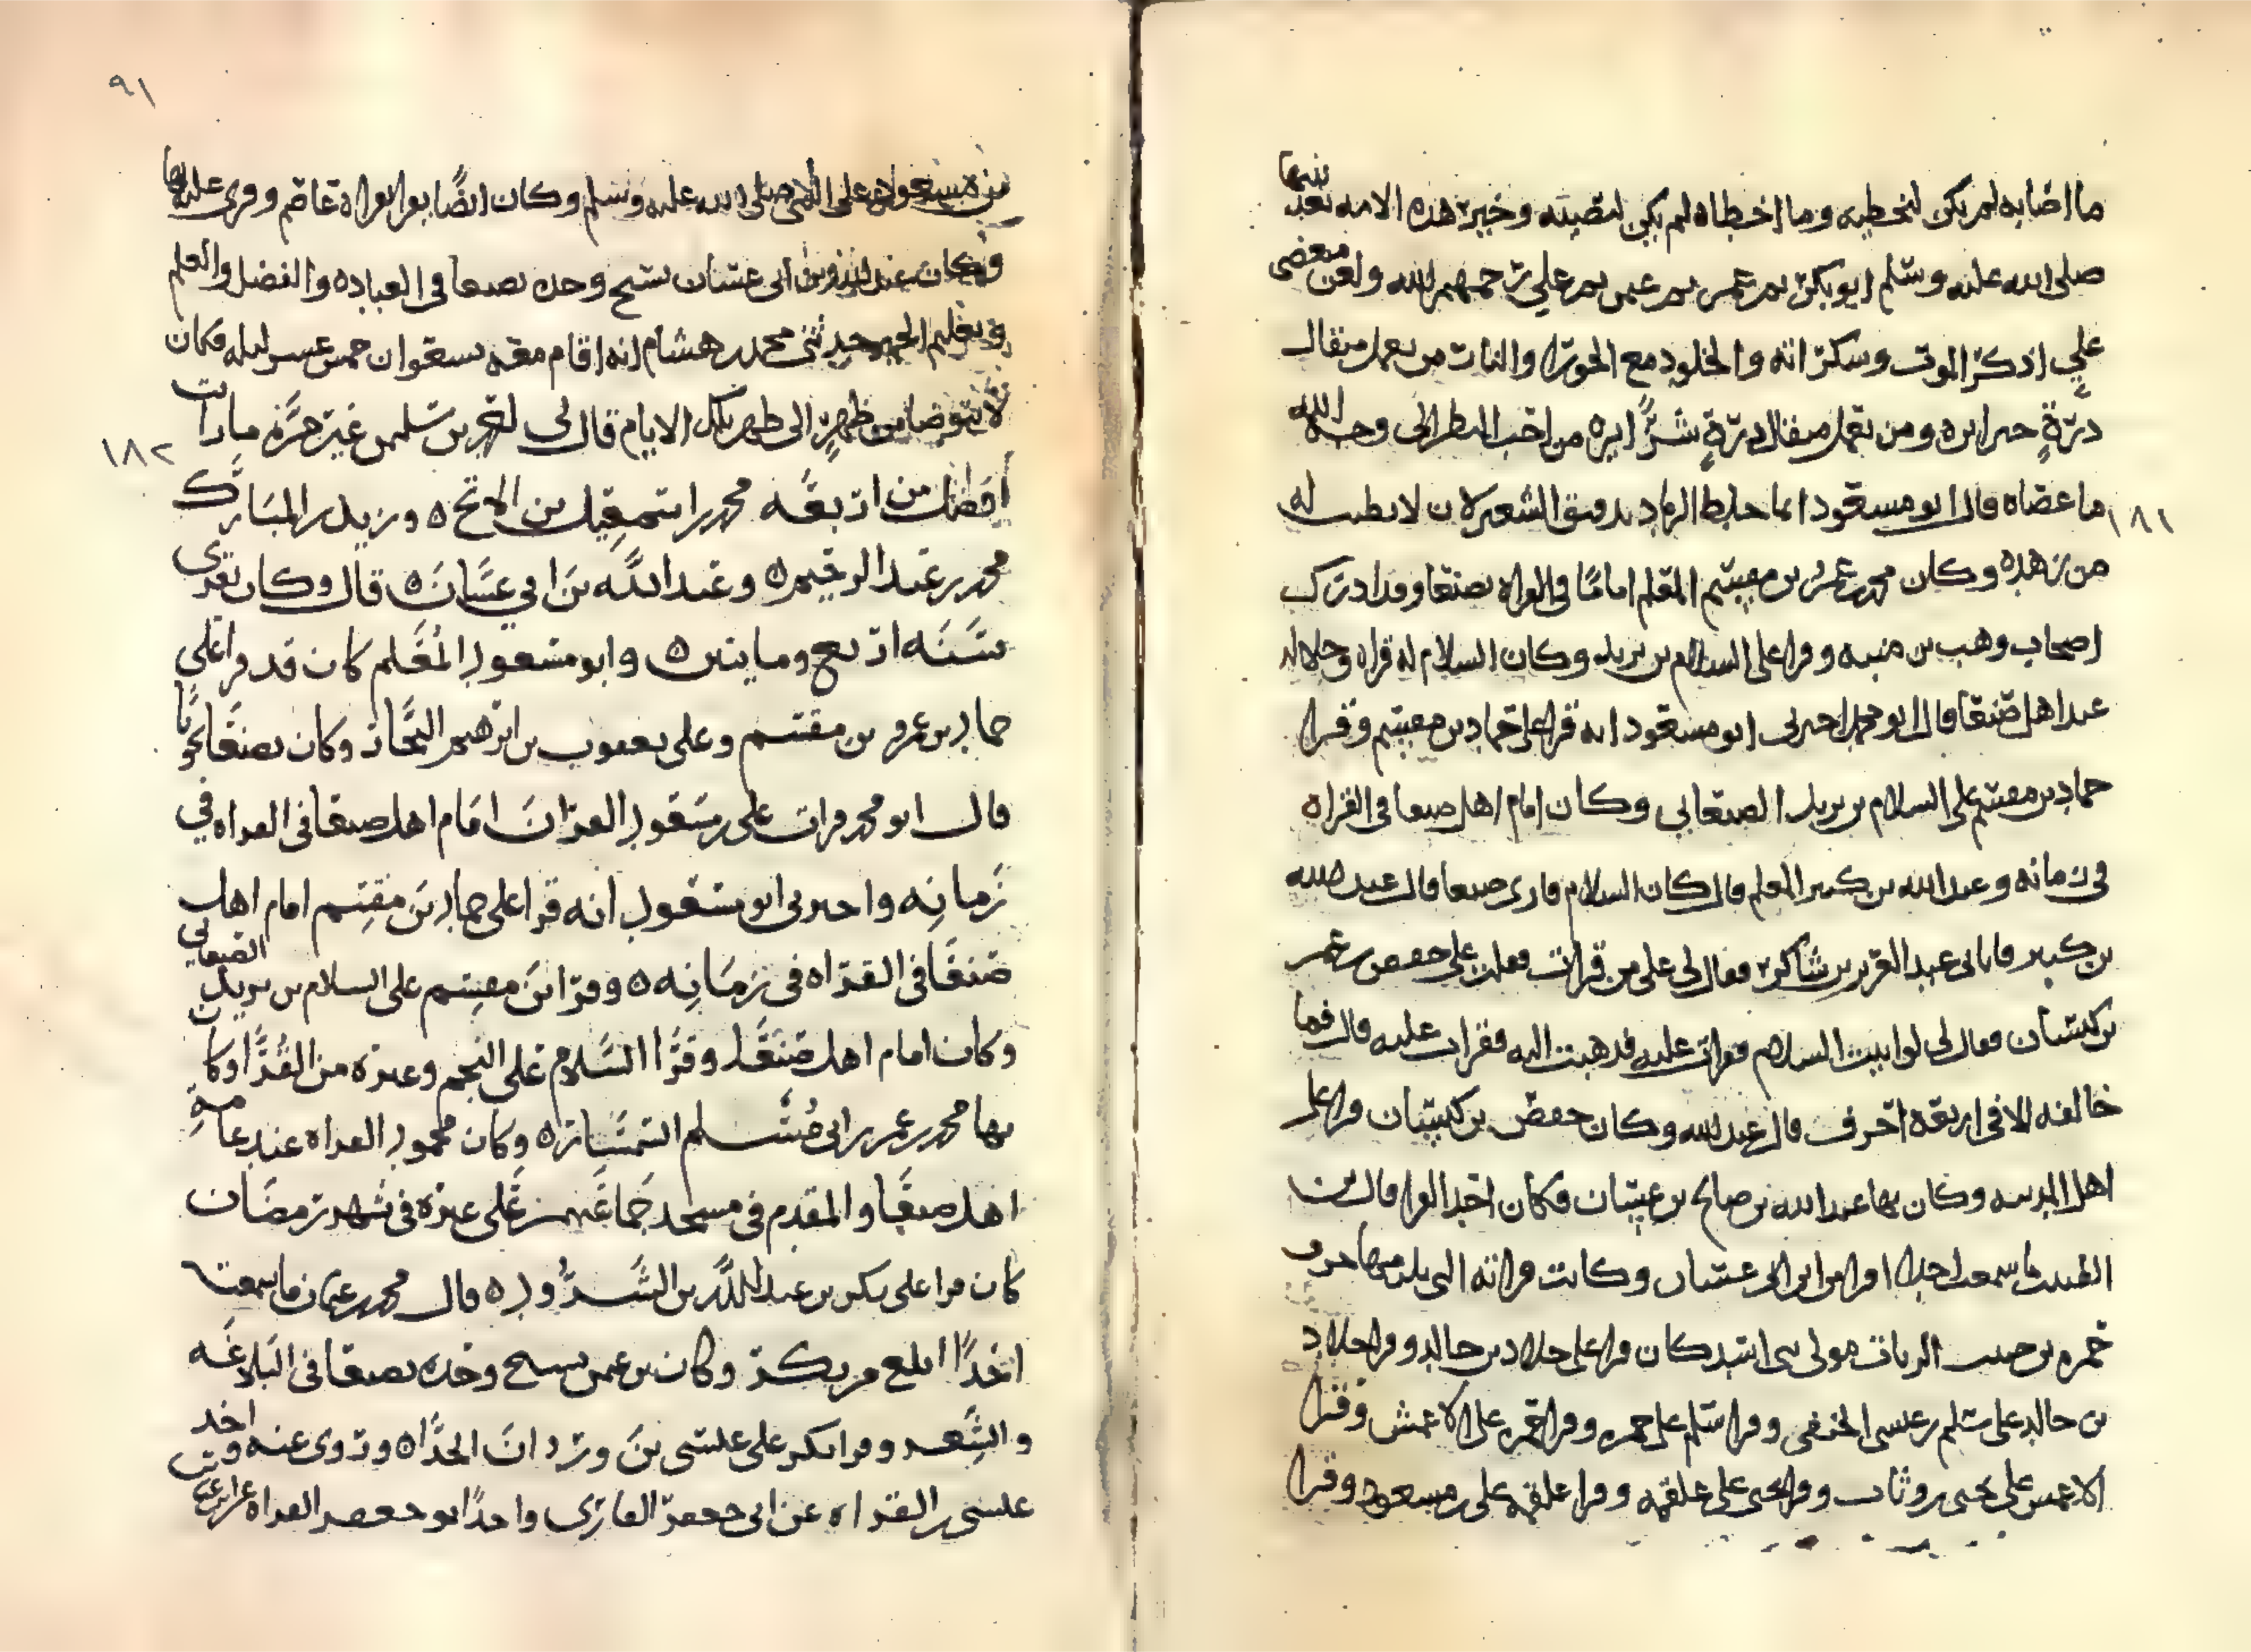 ما اصابه لم يكن ليخطيه وما اخطاه لم يكن ليصيبه وخير هذه الامه بعد نبيها
صلى الله عليه وسلم ابو بكر ثم عمر ثم عثمن ثم علي رحمهم الله ولعن مبغضي
علي اذكر الموت وسكراته والخلود مع الحور او النار من يعمل مثقال
ذرة خيرا يره ومن يعمل مثقال ذرة شرا يره من احب النظر الى وجه الله
ما عصاه قال ابو مسعود انما خلط الرماد بدقيق الشعير لان لا يطيب له
١٨١
من زهده وكان محمد بن عمرو بن مقيسم المعلم اماما في القراه بصنعا وقد ادرك
اصحاب وهب بن منبه وقرا على السلام بن يزيد وكان السلام له قراه وجلاله
عند اهل صنعا قال ابو محمد اخبرني ابو مسعود انه قرا على حماد بن مقيسم وقرا
حماد بن مقيسم على السلام بن يزيد الصنعاني وكان امام اهل صنعا في القراه
في زمانه وعبد الله بن كثير المعلم قال كان السلام قارى صنعا قال عبد الله
بن كثير فاتاني عبد العزيز بن شاكر فقال لي على من قرات فقلت على حفص بن عمر
بن كيسان فقال لي لو اتيت السلام فقرات عليه فذهبت اليه فقرات عليه قال فما
خالفته الا في اربعة احرف قال عبد الله وكان حفص بن كيسان قرا على
اهل المدينه وكان بها عبد الله بن صالح بن غسان فكان احد القرا قال بن
الطبيب ما سمعت احدا اقرا من ابن ابي غسان وكانت قراته التي يلزمها حرف
حمزه بن حبيب الزيات مولى بني اسد كان قرا على خلاد بن خالد وقرا خلاد
بن خالد على سليم بن عيسى الحنفي وقرا سليم على حمزه وقرا حمزه على الاعمش وقرا
الاعمش على يحيى بن وثاب وقرا يحيى على علقمه وقرا علقمه على بن مسعود وقرا
٩١
بن مسعود على النبي صلى الله عليه وسلم وكان ايضا يقرا بقراة عاصم وقرى عليه بها
وكان عبد الله بن ابي غسان نسيج وحده بصنعا في العباده والفضل والعلم
وتعليم الخير حدثني محمد بن هشام انه اقام معه بسعوان خمس عشره ليله فكان
لا يتوضا من ظهر الى ظهر تلك الايام قال لي يحيى بن سليمن غير مرة ما رايت
١٨٢
افضل من اربعه محمد بن اسمعيل بن الاتح ٥ ويزيد بن المبارك
محمد بن عبد الرحيم ٥ وعبد الله بن ابي غسان ٥ قال وكان يقرى
سنة اربع ومايتين ٥ وابو مسعود المعلم كان قد قرا على
حماد بن عمرو بن مقيسم وعلى يعقوب بن ابرهيم النجار وكان بصنعا نحويا
قال ابو محمد قرات على بن مسعود القران امام اهل صنعا في القراه في
زمانه واخبرني ابو مسعود انه قرا على حماد بن مقيسم امام اهل
صنعا في القراه في زمانه ٥ وقرا بن مقيسم على السلام بن يزيد الصنعاني
وكان امام اهل صنعا وقرا السلام على النجم وغيره من القرا وكان
بها محمد بن عمر بن ابي مسلم السمسار ٥ وكان محمود القراه عند عامة
اهل صنعا والمقدم في مسجد جماعتهم على غيره في شهر رمضان
كان قرا على بكر بن عبد الله بن الشرود ٥ قال محمد بن عثمان ما سمعت
احدا ابلغ من بكر وكان بن عمر نسيج وحده بصنعا في البلاغه
والشعر وقرا بكر على عيسى بن وردان الحذا ٥ وروى عنه واخذ
عيسى بن القراه عن ابي جعفر القارى واخذ ابو جعفر القراه عن ابن عباس